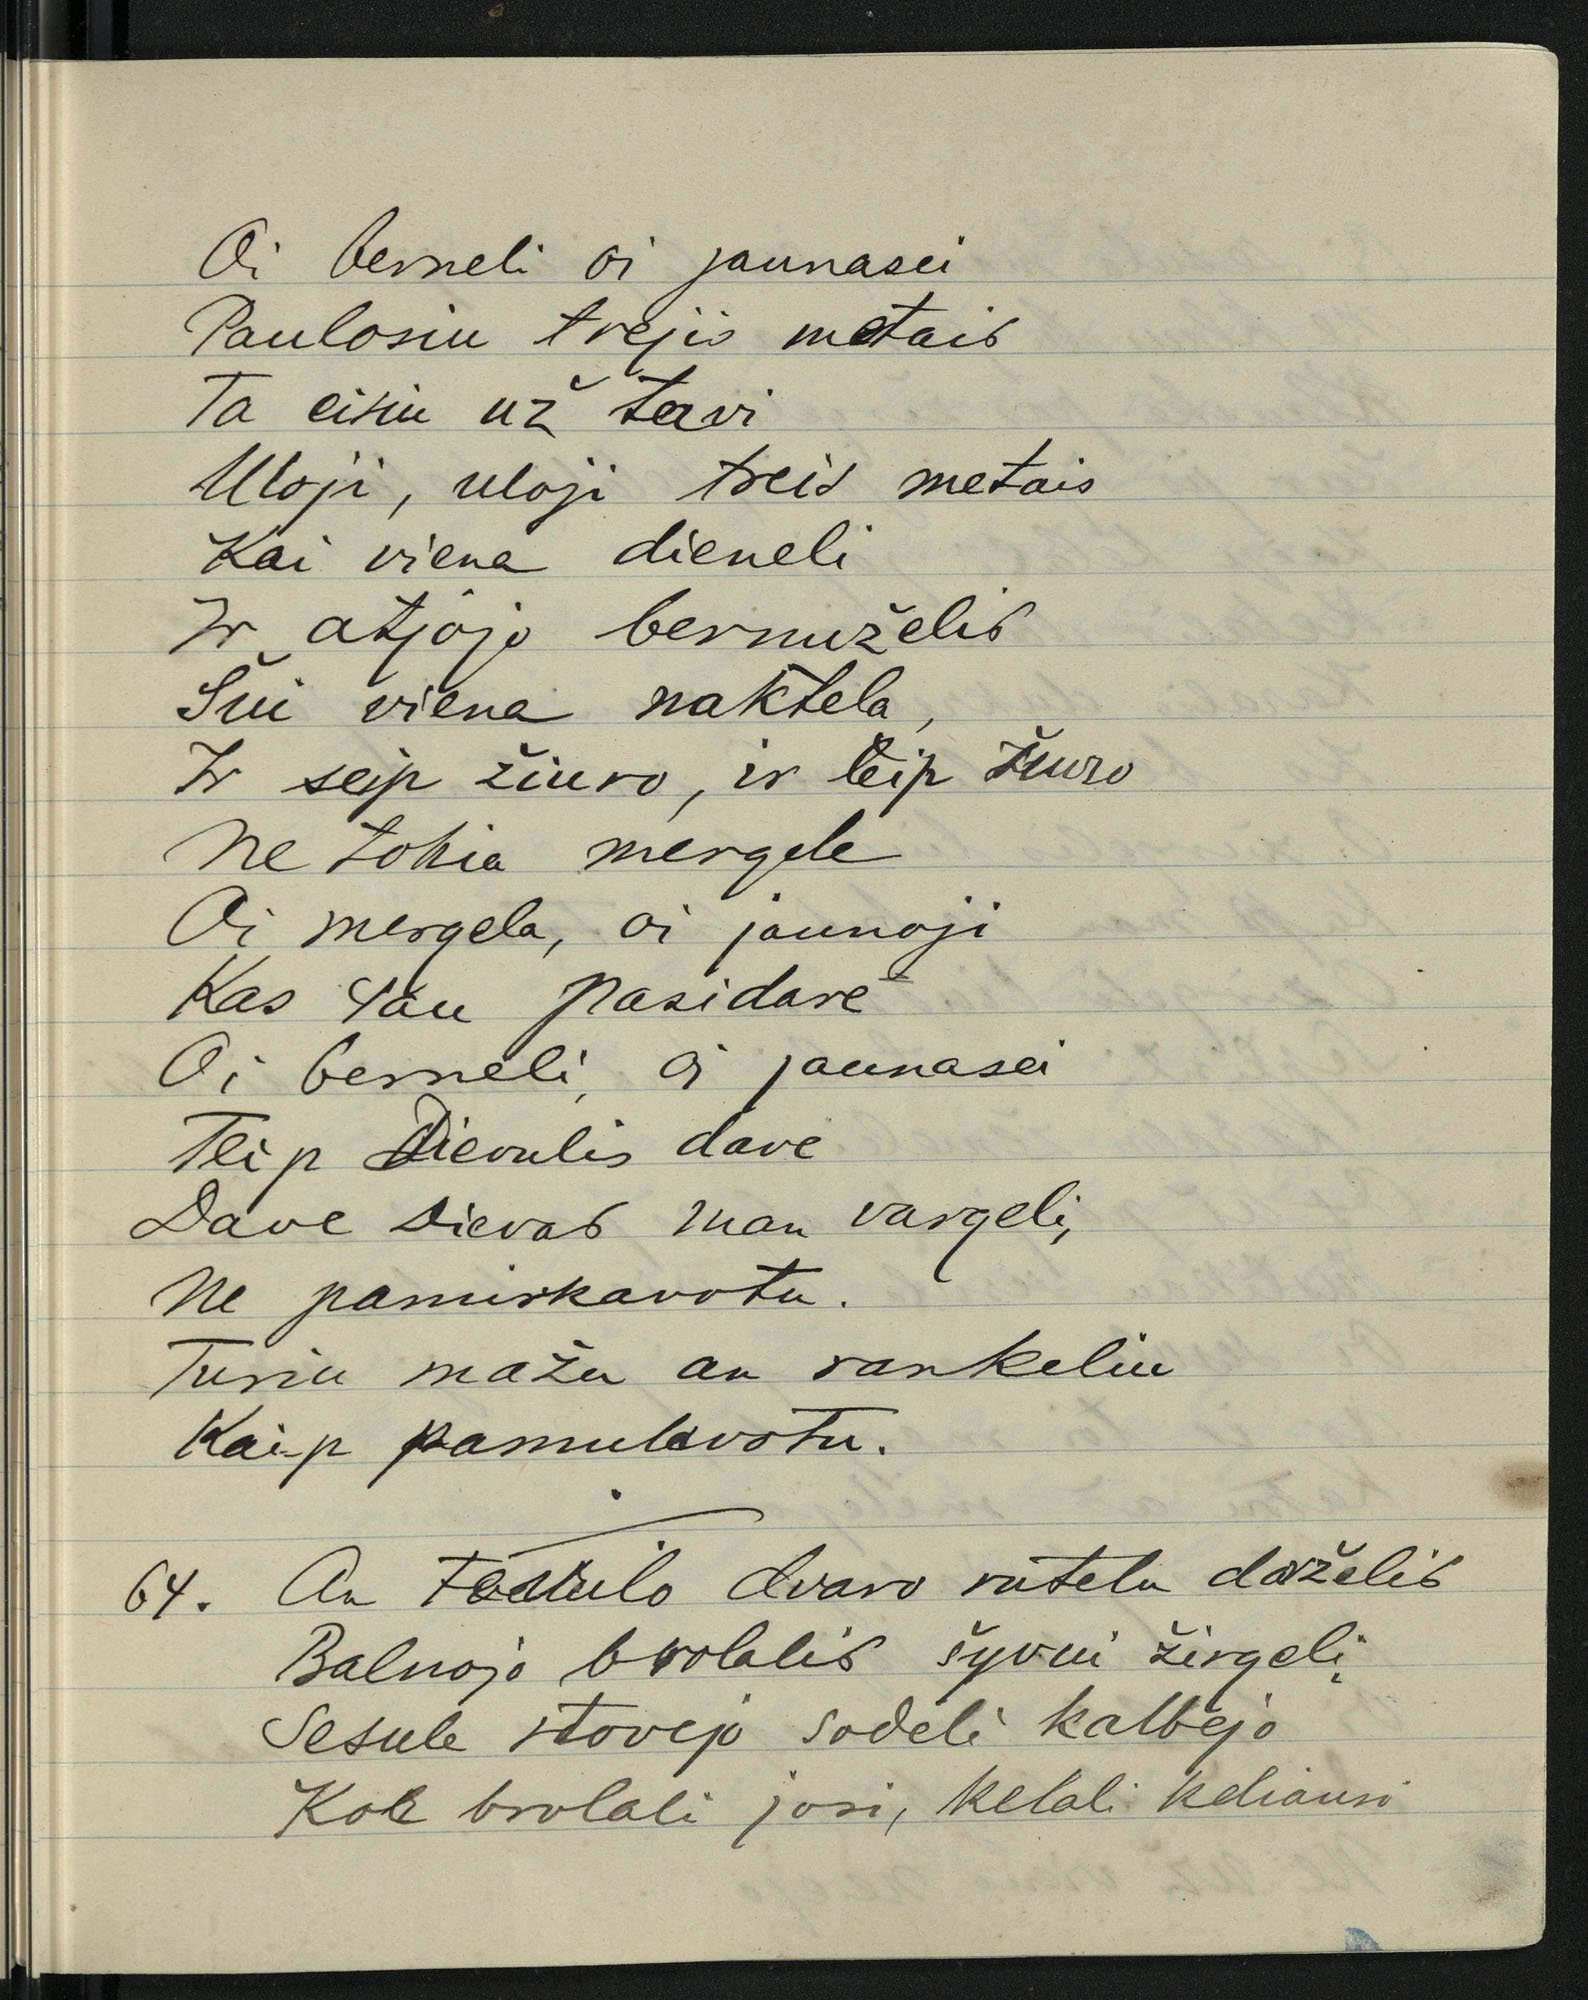 Oi berneli oi jaunasei
Paulosiu trejis metais
Ta eisiu už tavi
Uloji, uloji treis metais
Kai viena dieneli
Ir atjojo bernuželis
Šui viena naktela,
Ir seip žiuro, ir teip žiuro
Ne tokia mergele
Oi mergela, oi jaunoji
Kas tau pasidare
Oi berneli, oi jaunasei
Teip Dievulis dave
Dave Dievas man vargeli,
Ne pamirkavotu.
Turiu mažu an rankeliu
Kaip pamulavotu.
64. An dvaro rutelu darželis
Balnojo brolalis šyvui žirgelį
Sesule stovejo sodeli kalbejo
Kok brolali josi, kelali keliausi